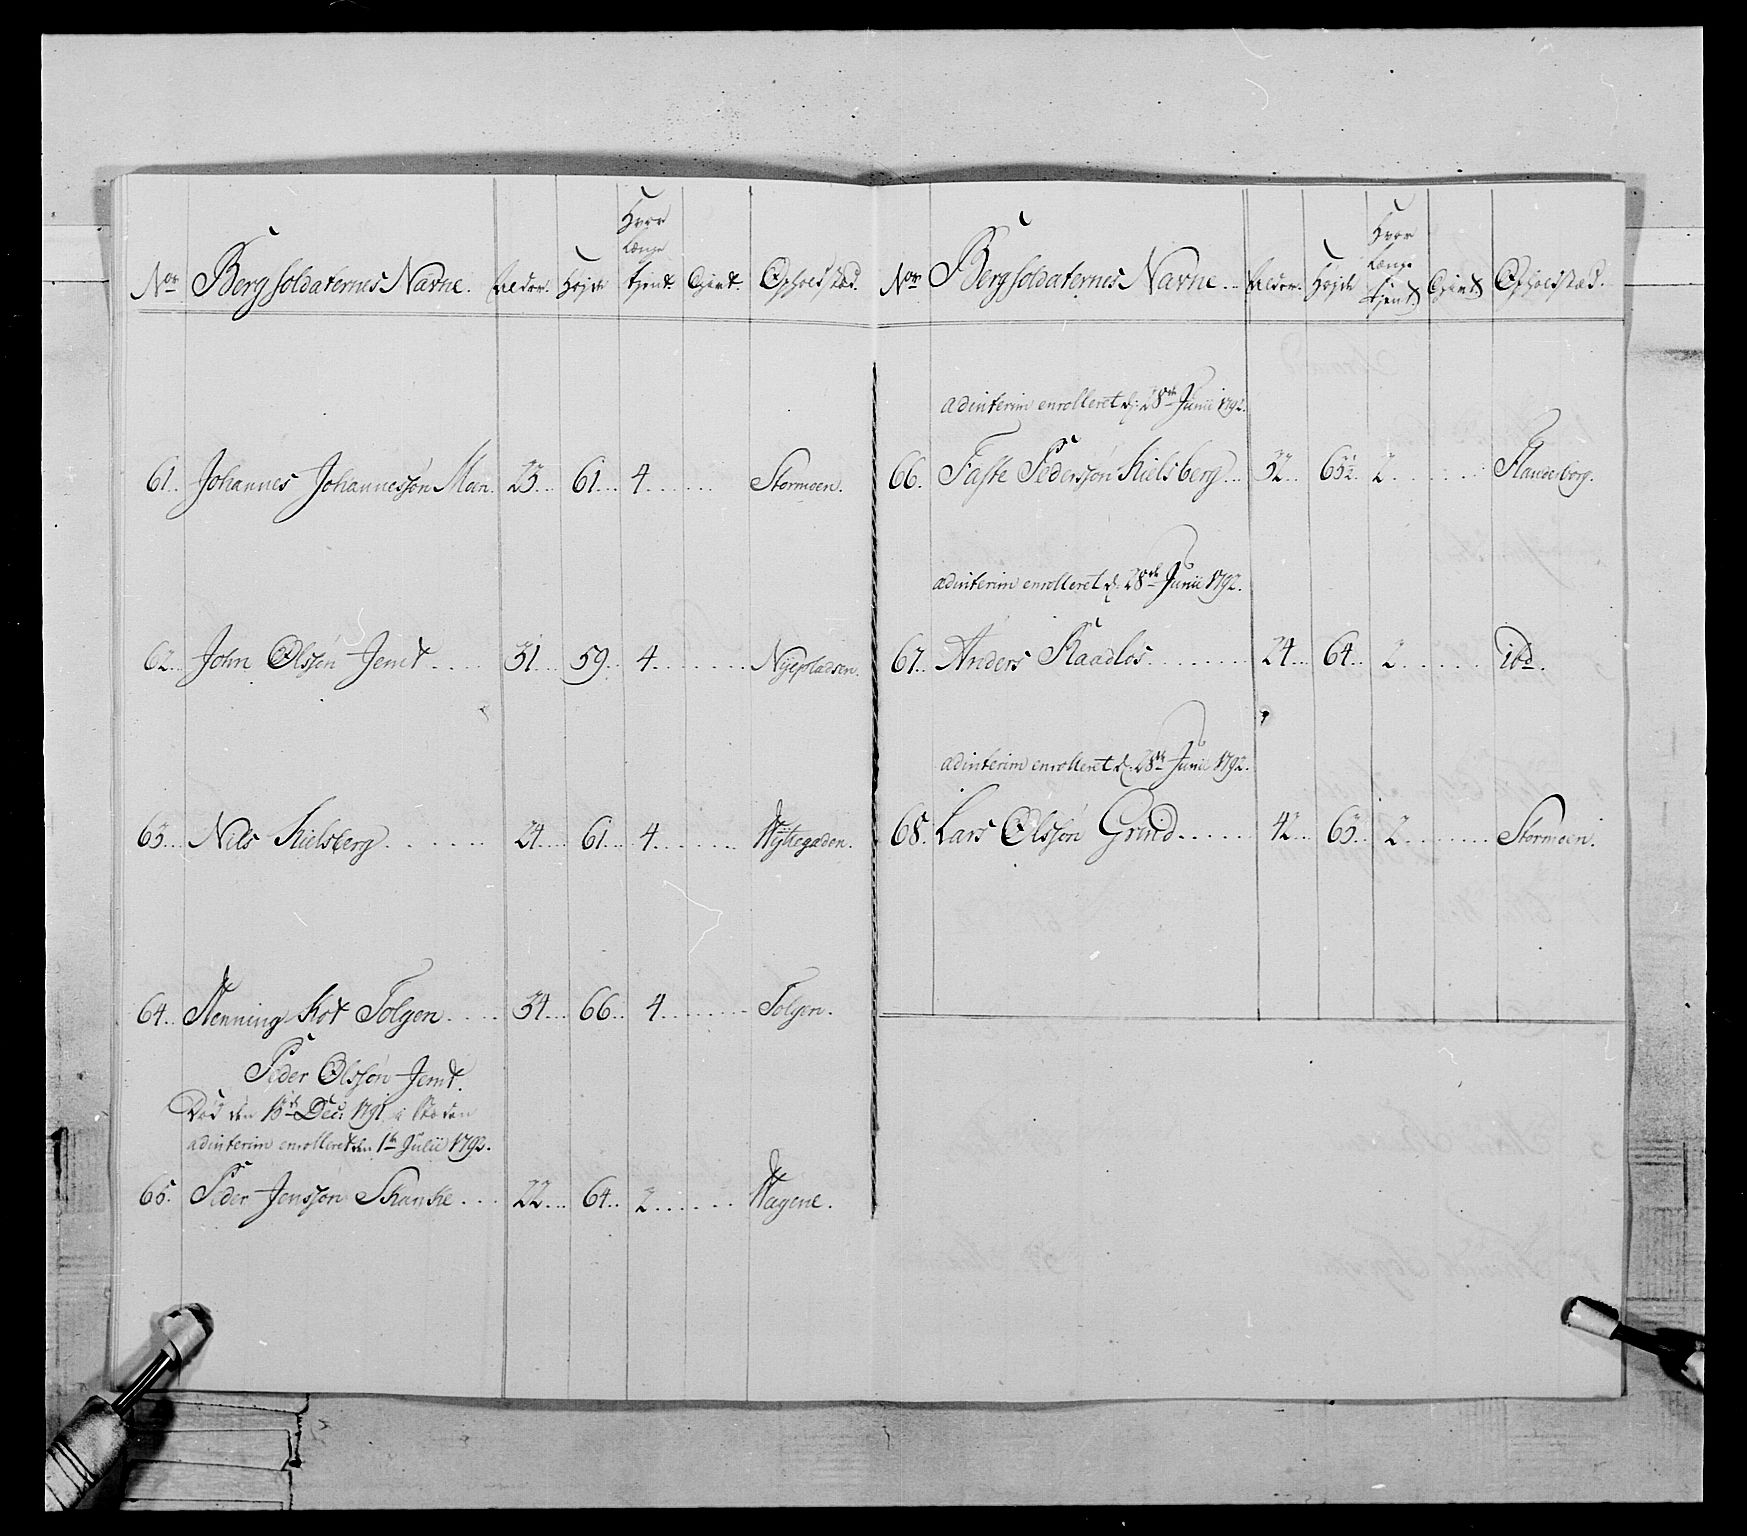 Nor Bergsoldaternes Navne. Alder. Højde Hvor længe tjent Gjent. Opholdstæd.
61. Johannes Johannessøn Moen. 23. 61. 4. Stormoen.
62. John Olssøn Jemt 31. 59. 4. Nyepladsen.
63. Nils Kielsberg 24. 61. 4. Hyttegaden.
64. Henning Kot Tolgen 34. 66. 4. Tolgen.
Peder Olssøn Jemt.
Død den 13de Dec: 1791
adinterim enrolleret den 1te Julii 1792.
65. Peder Jenssøn Skanke 22. 64. 2. Hagene.
Nor Bergsoldaternes Navne. Alder. Højde Hvor længe tjent. Gjent. Opholdstæd.
adinterim enrolleret d: 28de Junii 1792.
66. Faste Pederssøn Kielsberg 32. 63½. 2. Flanderborg.
adinterim enrolleret d: 28de Junii 1792.
67. Anders Kaadlos 24. 64. 2. ibd.
adinterim enrolleret d: 28de Junii 1792.
68. Lars Olssøn Grind 42. 63. 2. Stormoen.